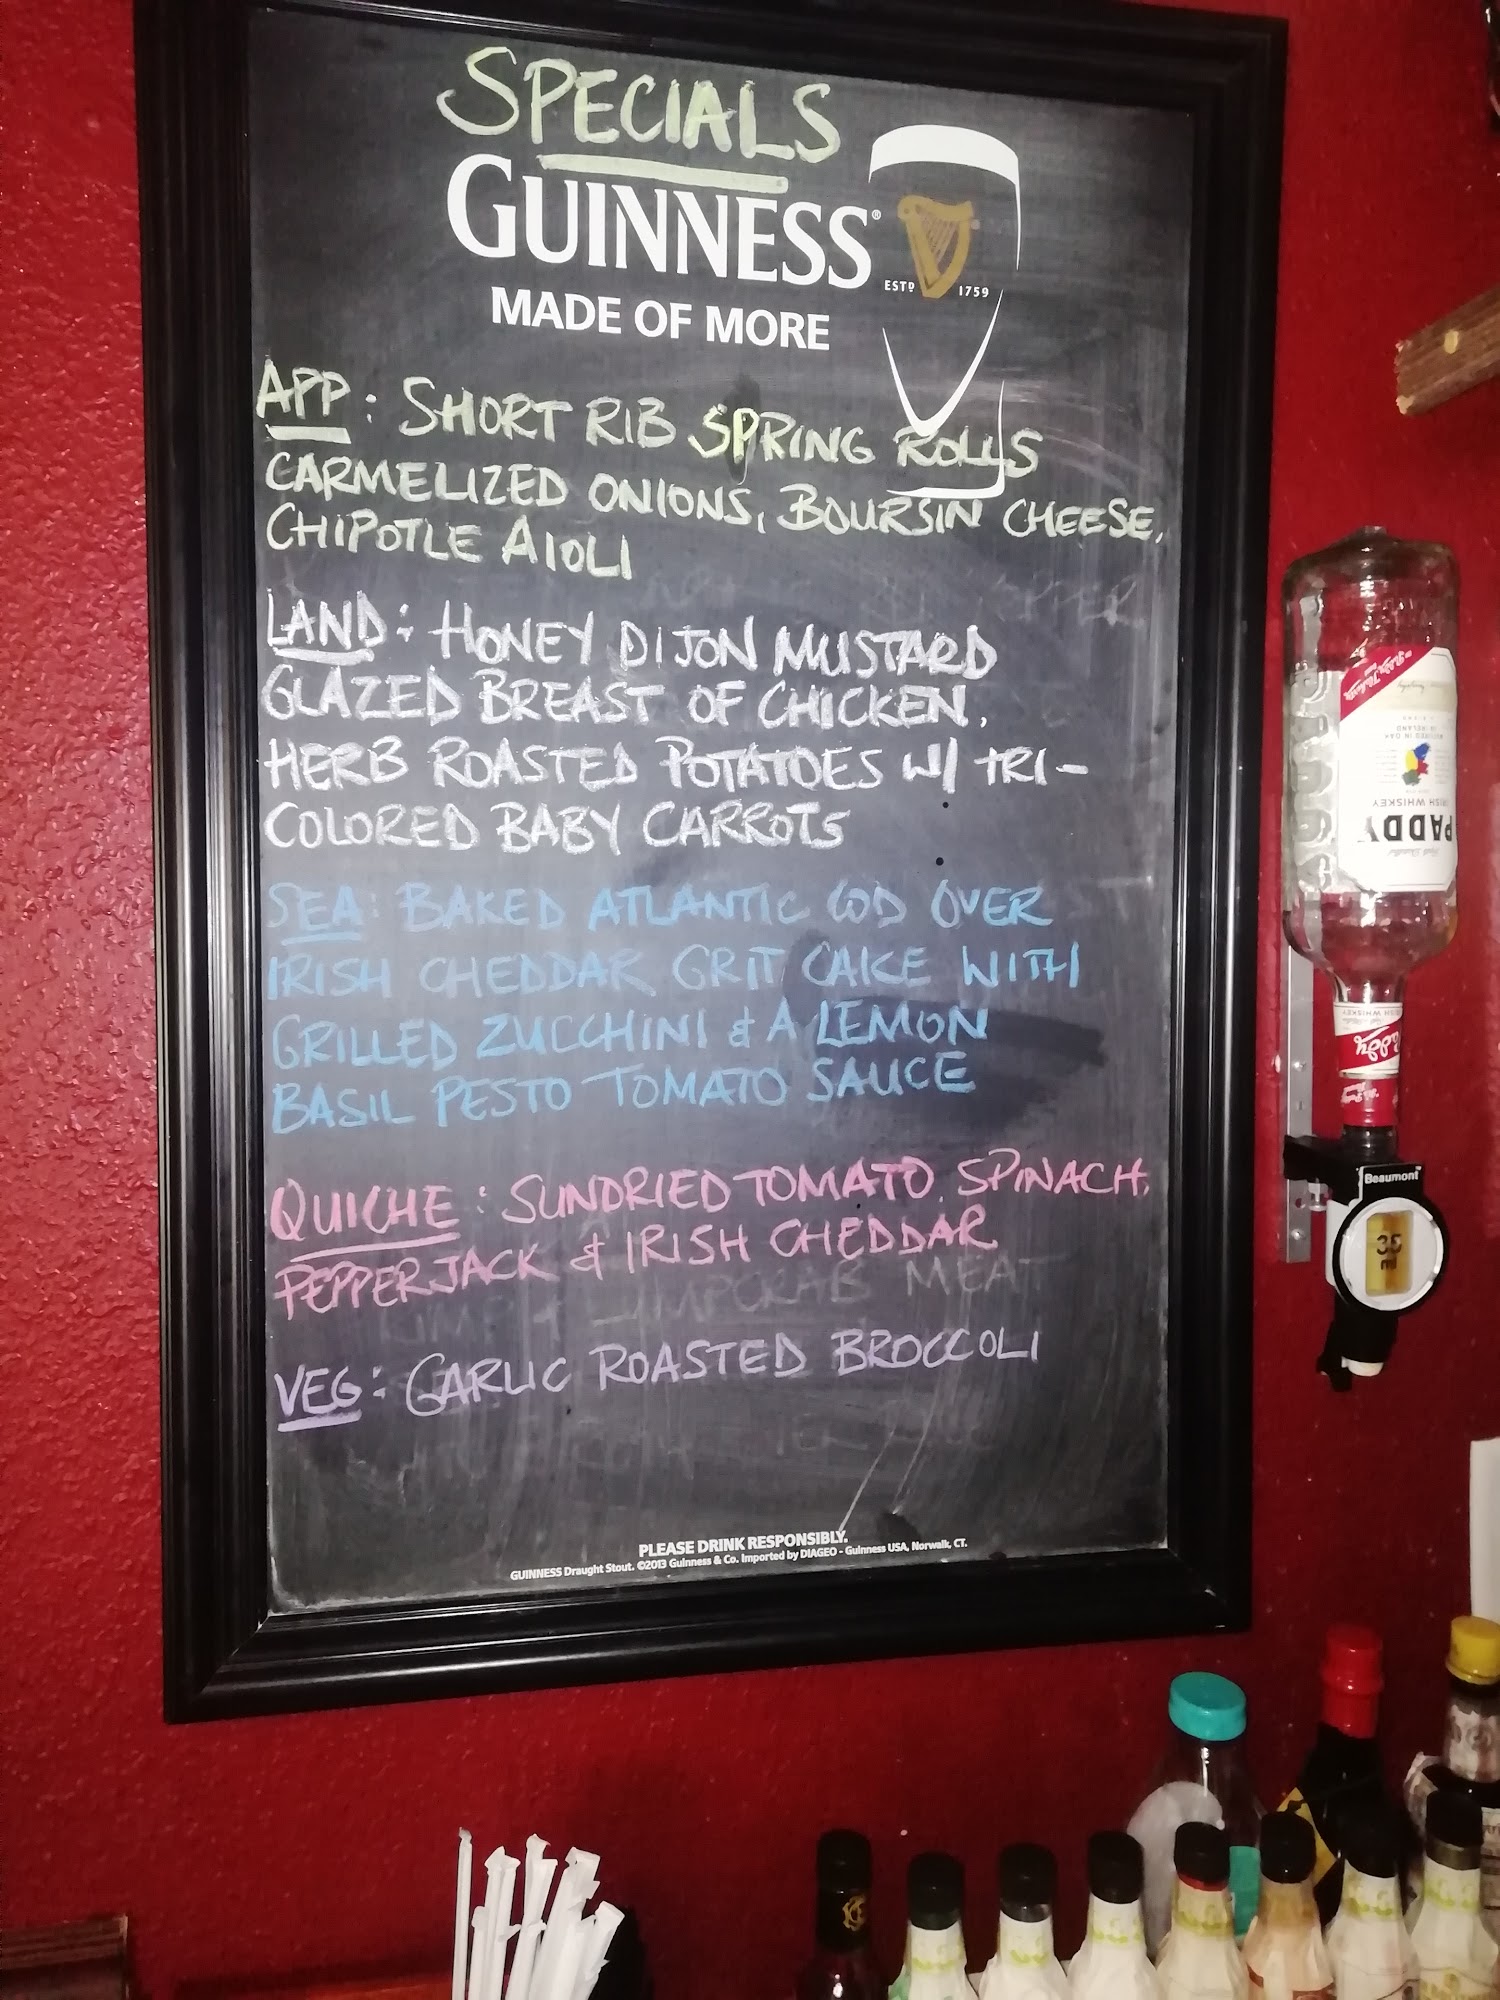 SPECIALS
GUINNESS®
ESTD 1759
MADE OF MORE
APP: SHORT RIB SPRING ROLLS
CARMELIZED ONIONS, BOURSIN CHEESE,
CHIPOTLE AIOLI
LAND: HONEY DIJON MUSTARD
GLAZED BREAST OF CHICKEN,
HERB ROASTED POTATOES W/ TRI-
COLORED BABY CARROTS
SEA: BAKED ATLANTIC COD OVER
IRISH CHEDDAR GRIT CAKE WITH
GRILLED ZUCCHINI & A LEMON
BASIL PESTO TOMATO SAUCE
QUICHE: SUNDRIED TOMATO, SPINACH,
PEPPERJACK & IRISH CHEDDAR
CRAB MEAT
VEG: GARLIC ROASTED BROCCOLI
PLEASE DRINK RESPONSIBLY.
GUINNESS Draught Stout. ©2013 Guinness & Co. Imported by DIAGEO - Guinness USA, Norwalk, CT.
PADDY
IRISH WHISKEY
Paddy
IRISH WHISKEY
Beaumont™
35
ml